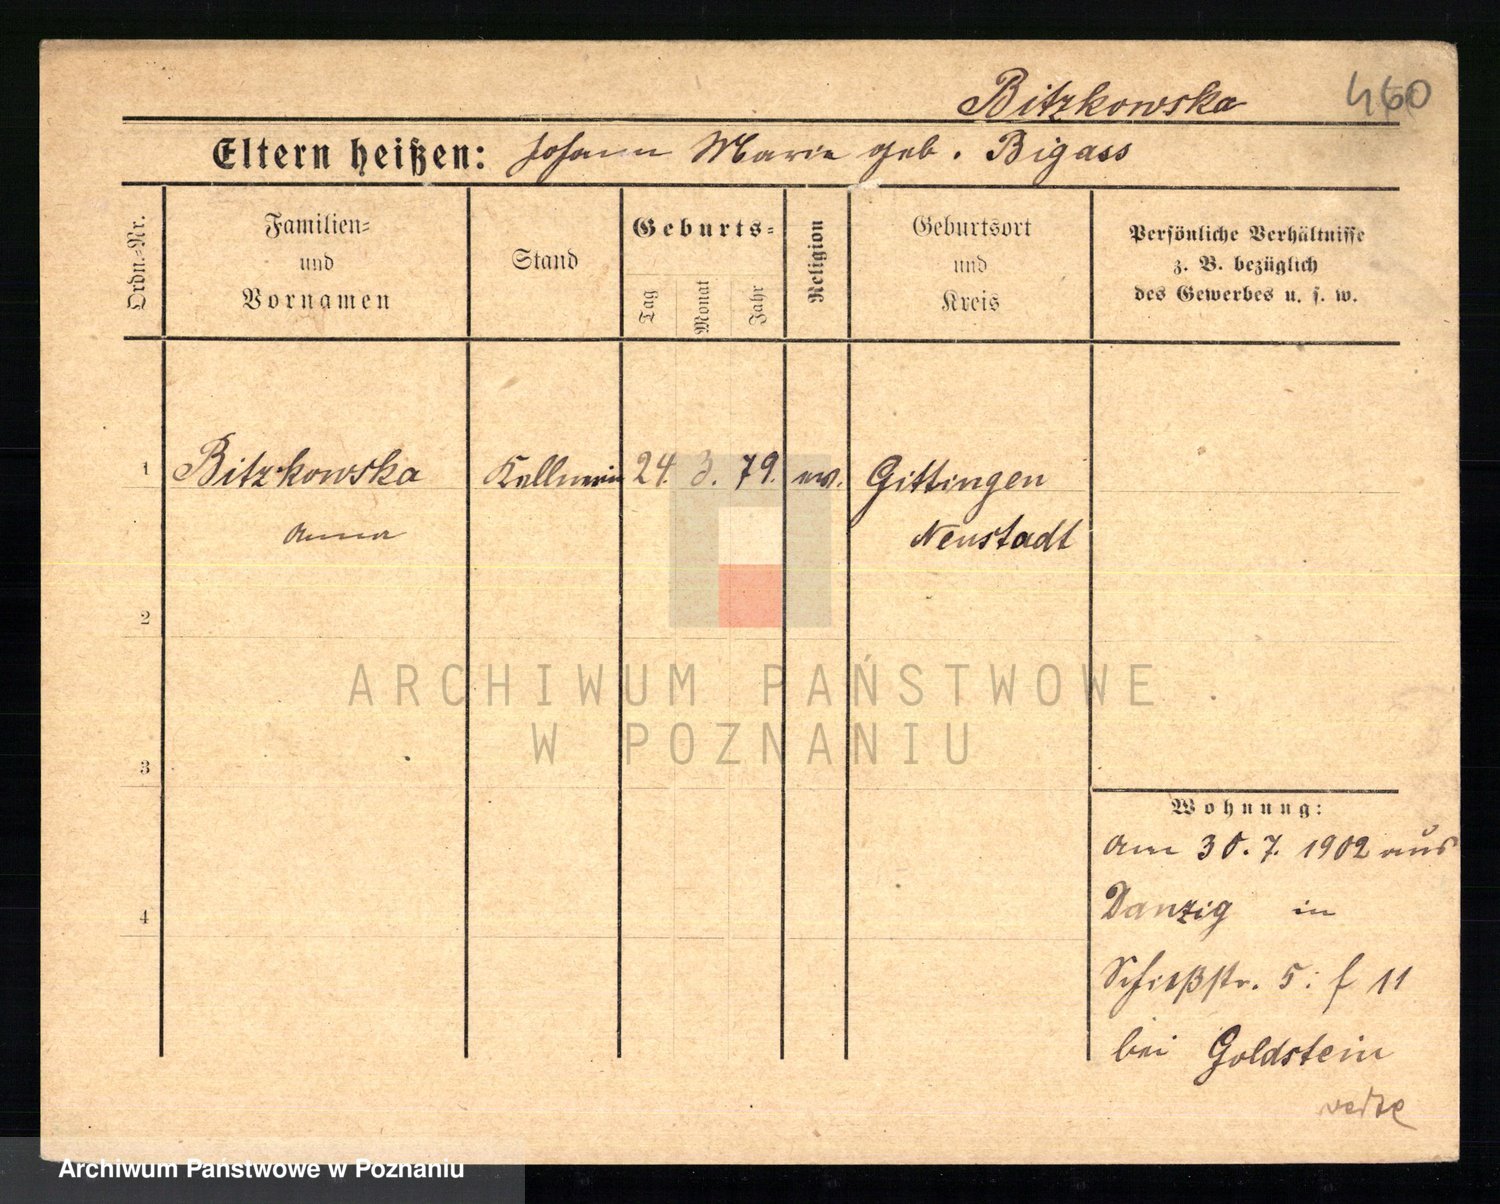 Bitzkowska 460
Eltern heißen: Johann Marie geb. Bigass
Ordn.-Nr.
Familien- und Vornamen
Stand
Geburts-
Tag
Monat
Jahr
Religion
Geburtsort und Kreis
Persönliche Verhältnisse
z. B. bezüglich
des Gewerbes u. s. w.
1 Bitzkowska Kellnerin 24. 3. 79. ev. Gittingen
Anna Neustadt
2
ARCHIWUM PAŃSTWOWE
W POZNANIU
3
Wohnung:
am 30. 7. 1902 aus
4 Danzig in
Schießstr. 5: f 11
bei Goldstein
Archiwum Państwowe w Poznaniu